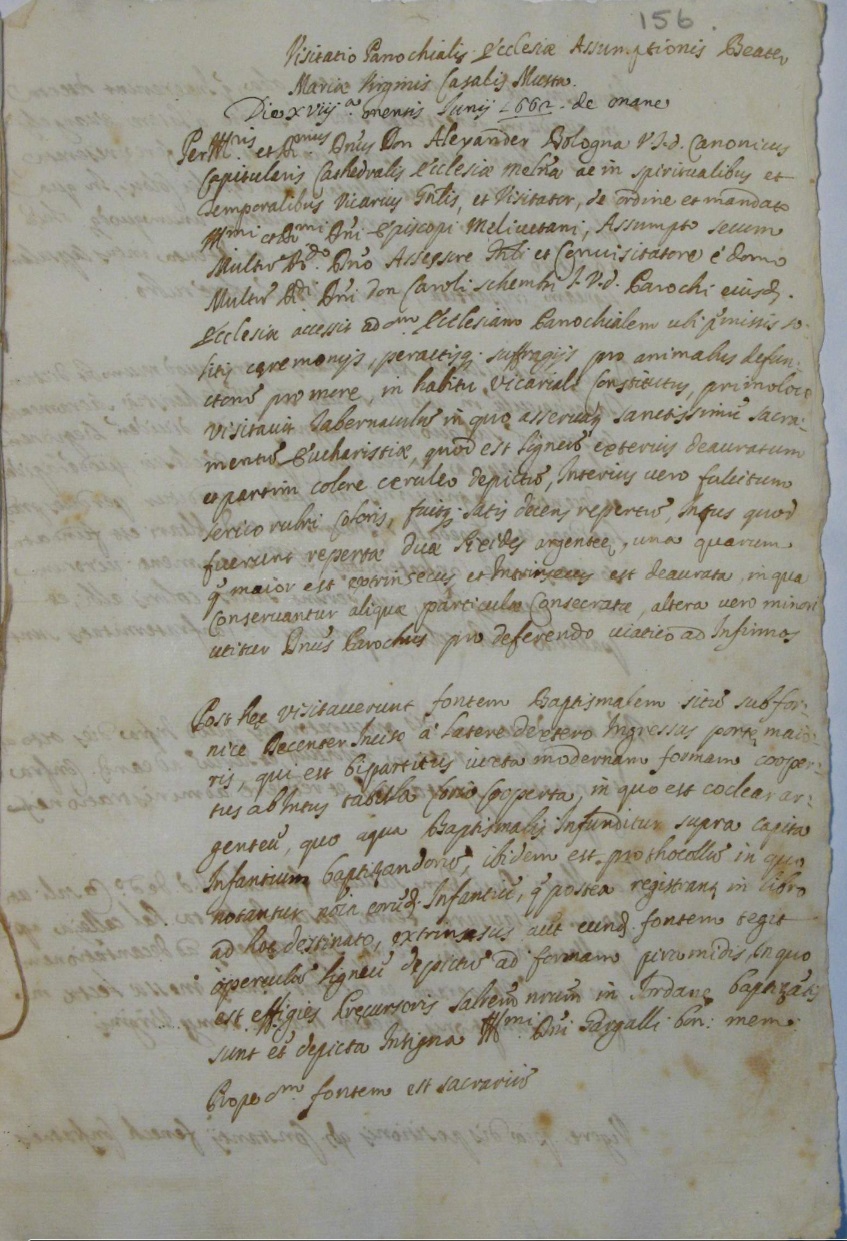 156
Visitatio Parochialis Ecclesiæ Assumptionis Beatæ
Mariæ Virginis Casalis Musta
Die xviij.ª mensis Junij 1662. de mane
Per M. Ill.ris et Adm. Dnus Don Alexander Bologna V.J.D. Canonicus
Capitularis Cathedralis Ecclesiæ Melitæ ac in spiritualibus et
temporalibus Vicarius Gnlis, et Visitator, de ordine et mandato
Dni Episcopi Melivetani, Assumpto secum
Multū Rdo. Dno Assessore et Convisitatore è domo
Multū Rdi Dni don Caroli schembri J.V.D. Parochi eiusd.
Ecclesiæ accessit ad dm Ecclesiam Parochialem ubi pmissis so-
litis ceremonijs, peractisq. suffragijs pro animabus defun-
ctorū pro more, in habitu vicariali Constitutus, primo loco
visitavit Tabernaculū in quo asservatur sanctissimū sacra-
mentū Eucharistiæ, quod est ligneū exterius deauratum
et partim colore ceruleo depictū, Interius vero fulcitum
serico rubri coloris, fuitq. satis decens repertū, Intus quod
fuerunt repertæ duæ Pixides argenteę, una quarum
q. maior est extrinsecus et Intrinsecus est deaurata, in qua
Conservantur aliquæ particulæ Consecratæ, altera vero minori
utitur Dnus Parochus pro deferendo viatico ad Infirmos
Post hęc visitaverunt fontem Baptismalem sitū sub for-
nice Decenter Inciso à latere dextero Ingressus portę maio-
ris, qui est bipartitus iuxta modernam formam cooper-
tus ab Intus tabella Corio Cooperta, in quo est coclear ar-
genteū, quo aqua Baptismalis Infunditur supra capita
Infantium baptizandorū, ibidem est prothocollū in quo
notantur nõia eorūd. Infantiū, q. postea registrant. in libro
ad hoc destinato, extrinsecus aut eund. fontem tegit
operculū ligneū depictū ad formam piramidis, in quo
est effigies Precursoris Salvem nrum in Jordane baptizātis
sunt et depicta Insignia Dni Gargalli bon: mem:
Prope dm fontem est sacrariū